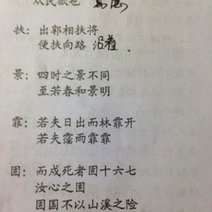 扶：出郭相扶将
便扶向路 沿着
景：四时之景不同
至若春和景明
霏：若夫日出而林霏开
若夫霪雨霏霏
固：而戍死者固十六七
汝心之固
固国不以山溪之险